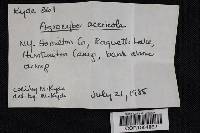 Hyde 861
Agrocybe acericola
NY. Hamilton Co, Raquette Lake,
Huntington Camp, bank above
swamp
coll. by M. Hyde
det. by M. Hyde
July 21, 1985